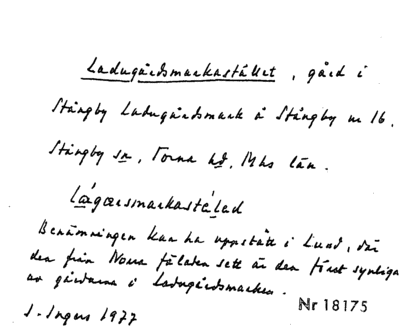 Ladugårdsmarkastället, gård i
Stångby Ladugårdsmark å Stångby nr 16.
Stångby sn, Torna hd, Mhs län.
lágarsmarkastälad
Benämningen kan ha uppstått i Lund, där
den från Norra fäladen sett är den först synliga
av gårdarna i Ladugårdsmarken.
I. Ingers 1977
Nr 18175